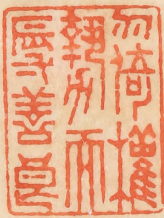 勿倚權
勢而
辱善良